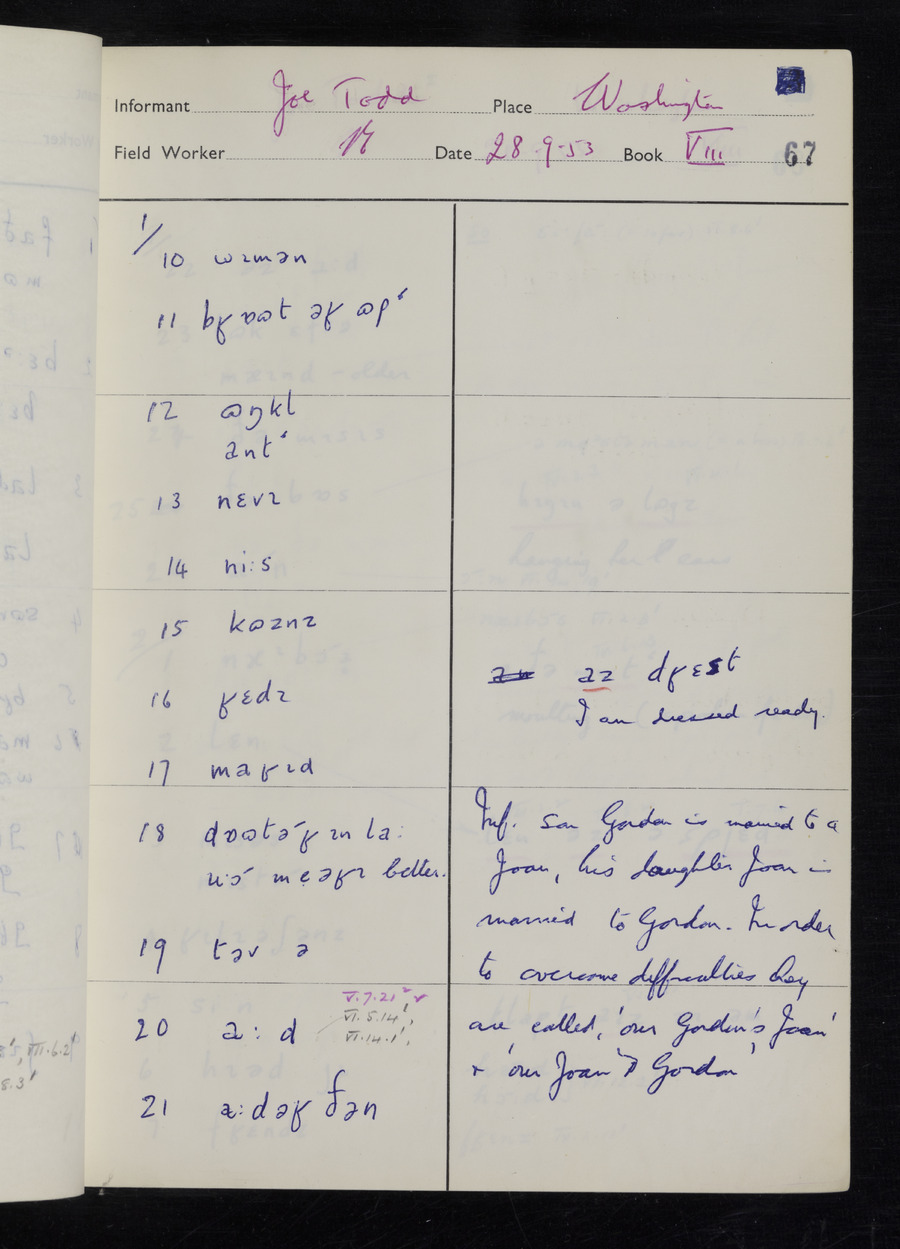 Informant Joe Todd Place Washington
Field Worker Date 28·9·53 Book VIII 67
1/
10 wɪmən
11 bʁɒɷt əʁ ɷpˈ
12 ɷŋkl
antˈ
13 nɛvɪ
14 ni:s
15 kɷznz
16 ʁɛdɪ
aɪ dʁɛst
I am dressed ready.
17 maʁɪd
18 dɒɷtəʁ ɪn la:
better.
19 təv ə
20 a:d
V.7.21² ✓
VI.5.14¹,
VI.14.1¹,
21 a:dəʁ ðən
Inf. son Gordon is married to a
Joan, his daughter Joan is
married to Gordon. In order
to overcome difficulties they
are called, 'our Gordon's Joan'
+ 'our Joan's Gordon'
VII.6.2¹
8.3¹